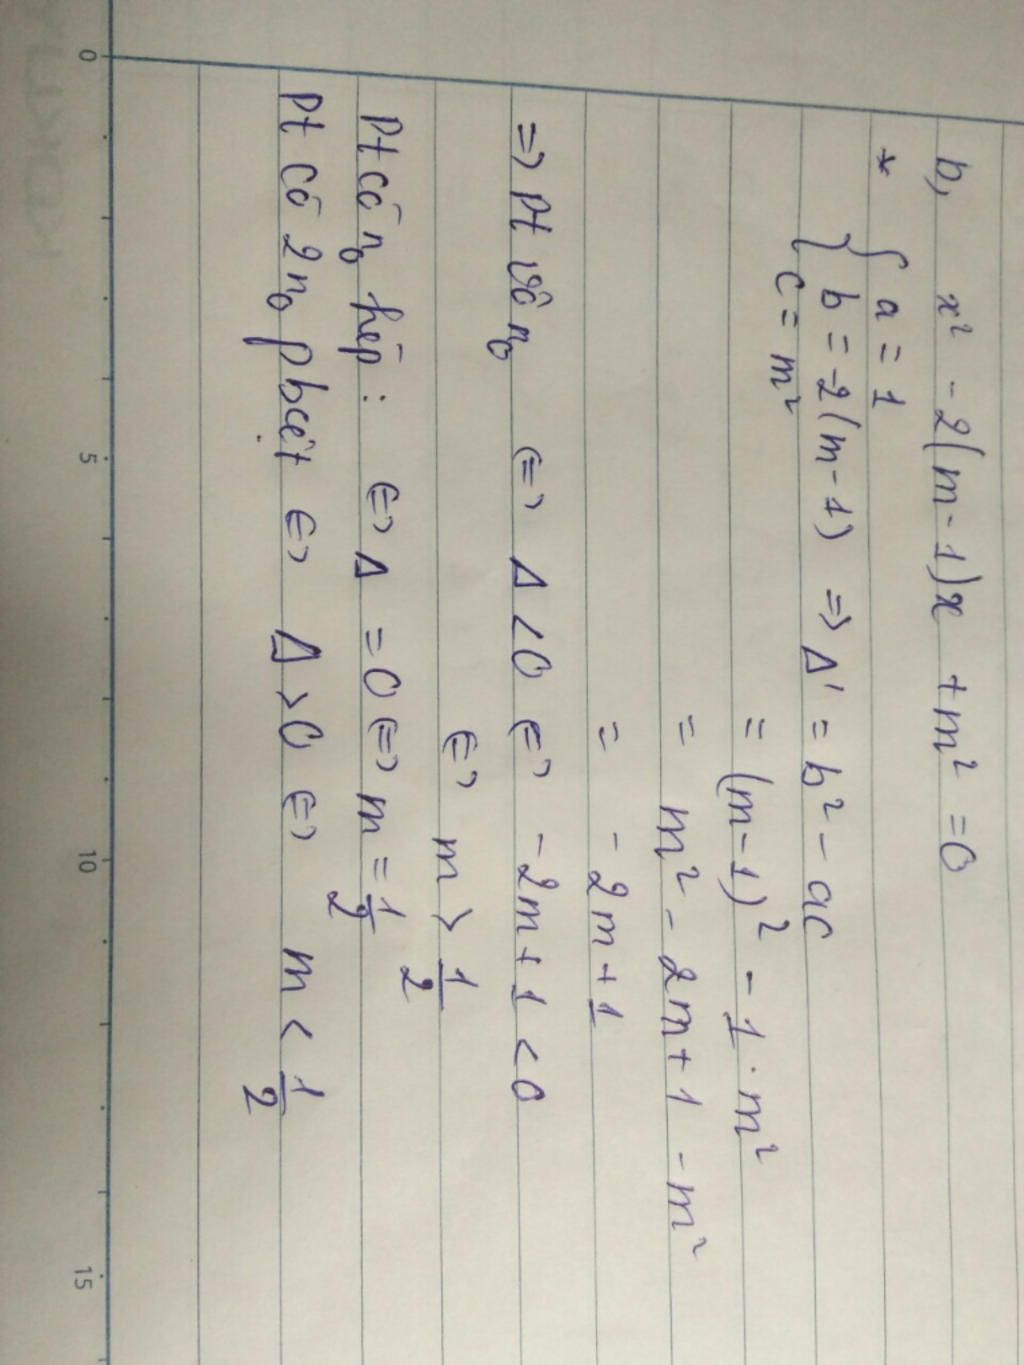 b, x² - 2(m - 1)x + m² = 0
* { a = 1
b = -2(m - 1) => Δ' = b² - ac
c = m²
= (m-1)² - 1 . m²
= m² - 2m + 1 - m²
= - 2m + 1
=> Pt vô n₀ <=> Δ < 0 <=> - 2m + 1 < 0
<=> m > 1/2
Pt có n₀ kép : <=> Δ = 0 <=> m = 1/2
Pt có 2 n₀ pbiệt <=> Δ > 0 <=> m < 1/2
0
5
10
15